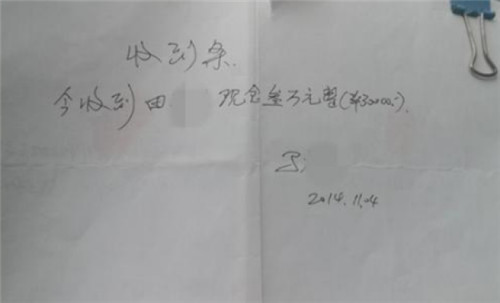 收到条
今收到田 现金叁万元整(¥30000.)
2014.11.04